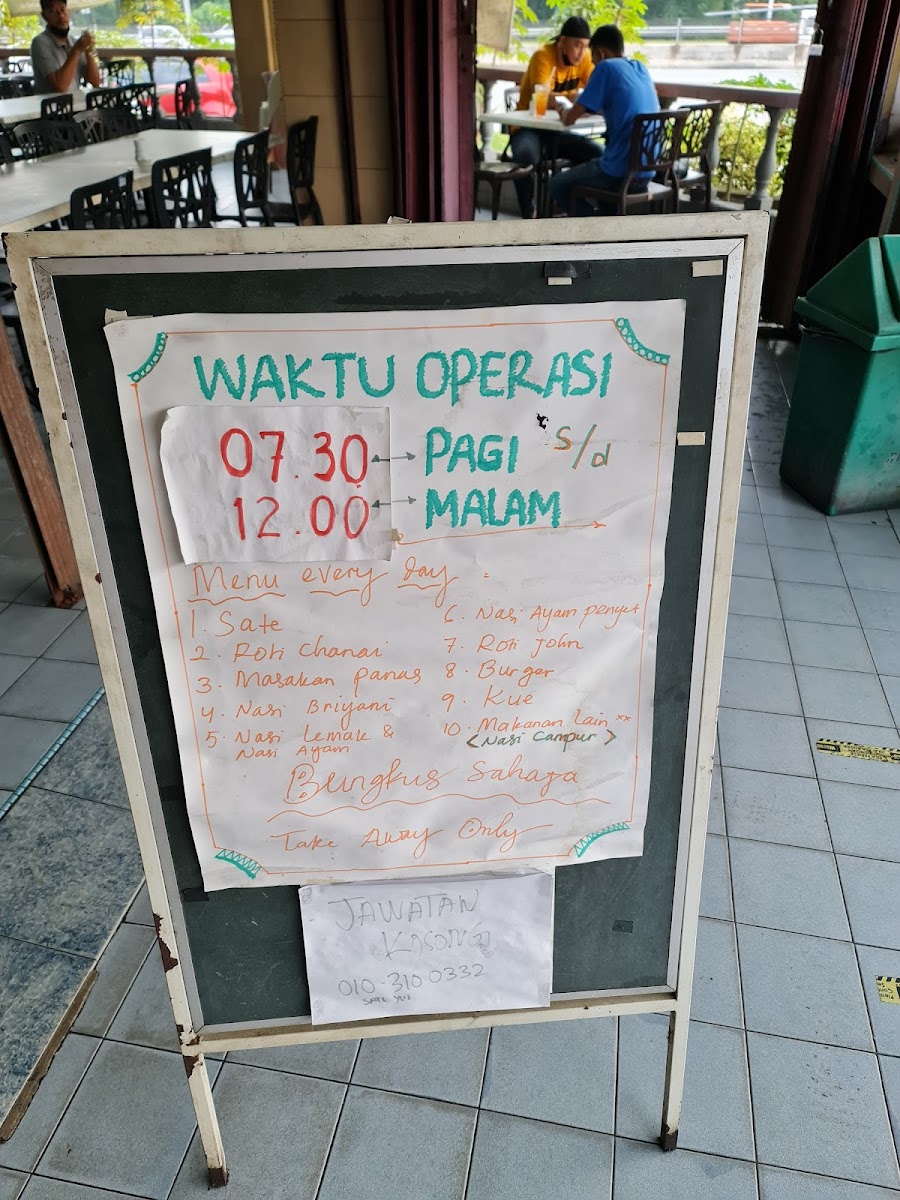 WAKTU OPERASI
07.30 PAGI s/d
12.00 MALAM
Menu every day :
1. Sate
2. Roti Chanai
3. Masakan Panas
4. Nasi Briyani
5. Nasi Lemak &
Nasi Ayam
6. Nasi Ayam Penyet
7. Roti John
8. Burger
9. Kue
10. Makanan Lain **
<Nasi Campur>
Bungkus Sahaja
Take Away Only
JAWATAN
KOSONG
010-310 0332